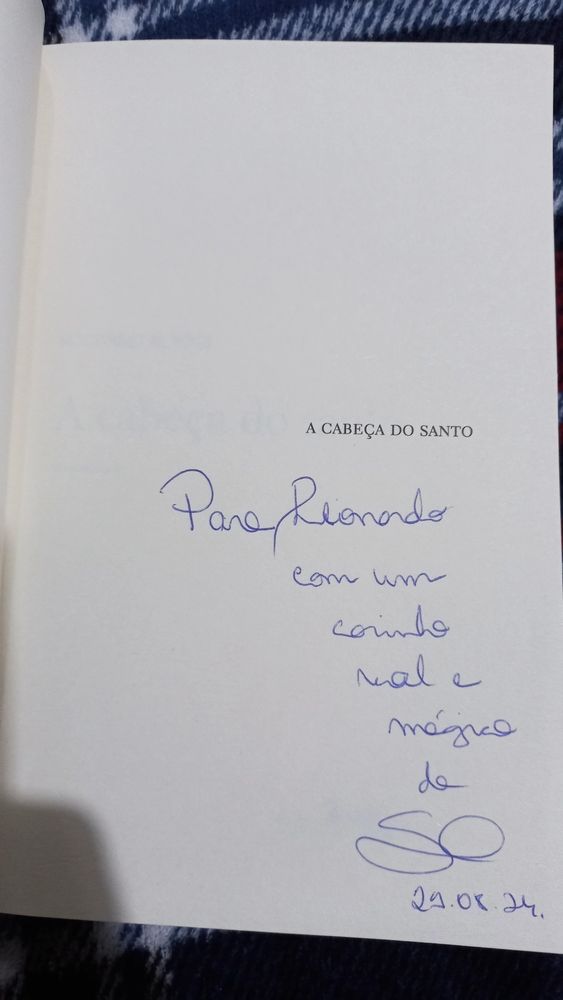 A CABEÇA DO SANTO
Para Leonardo
com um
carinho
real e
mágico
de
29.08.24.